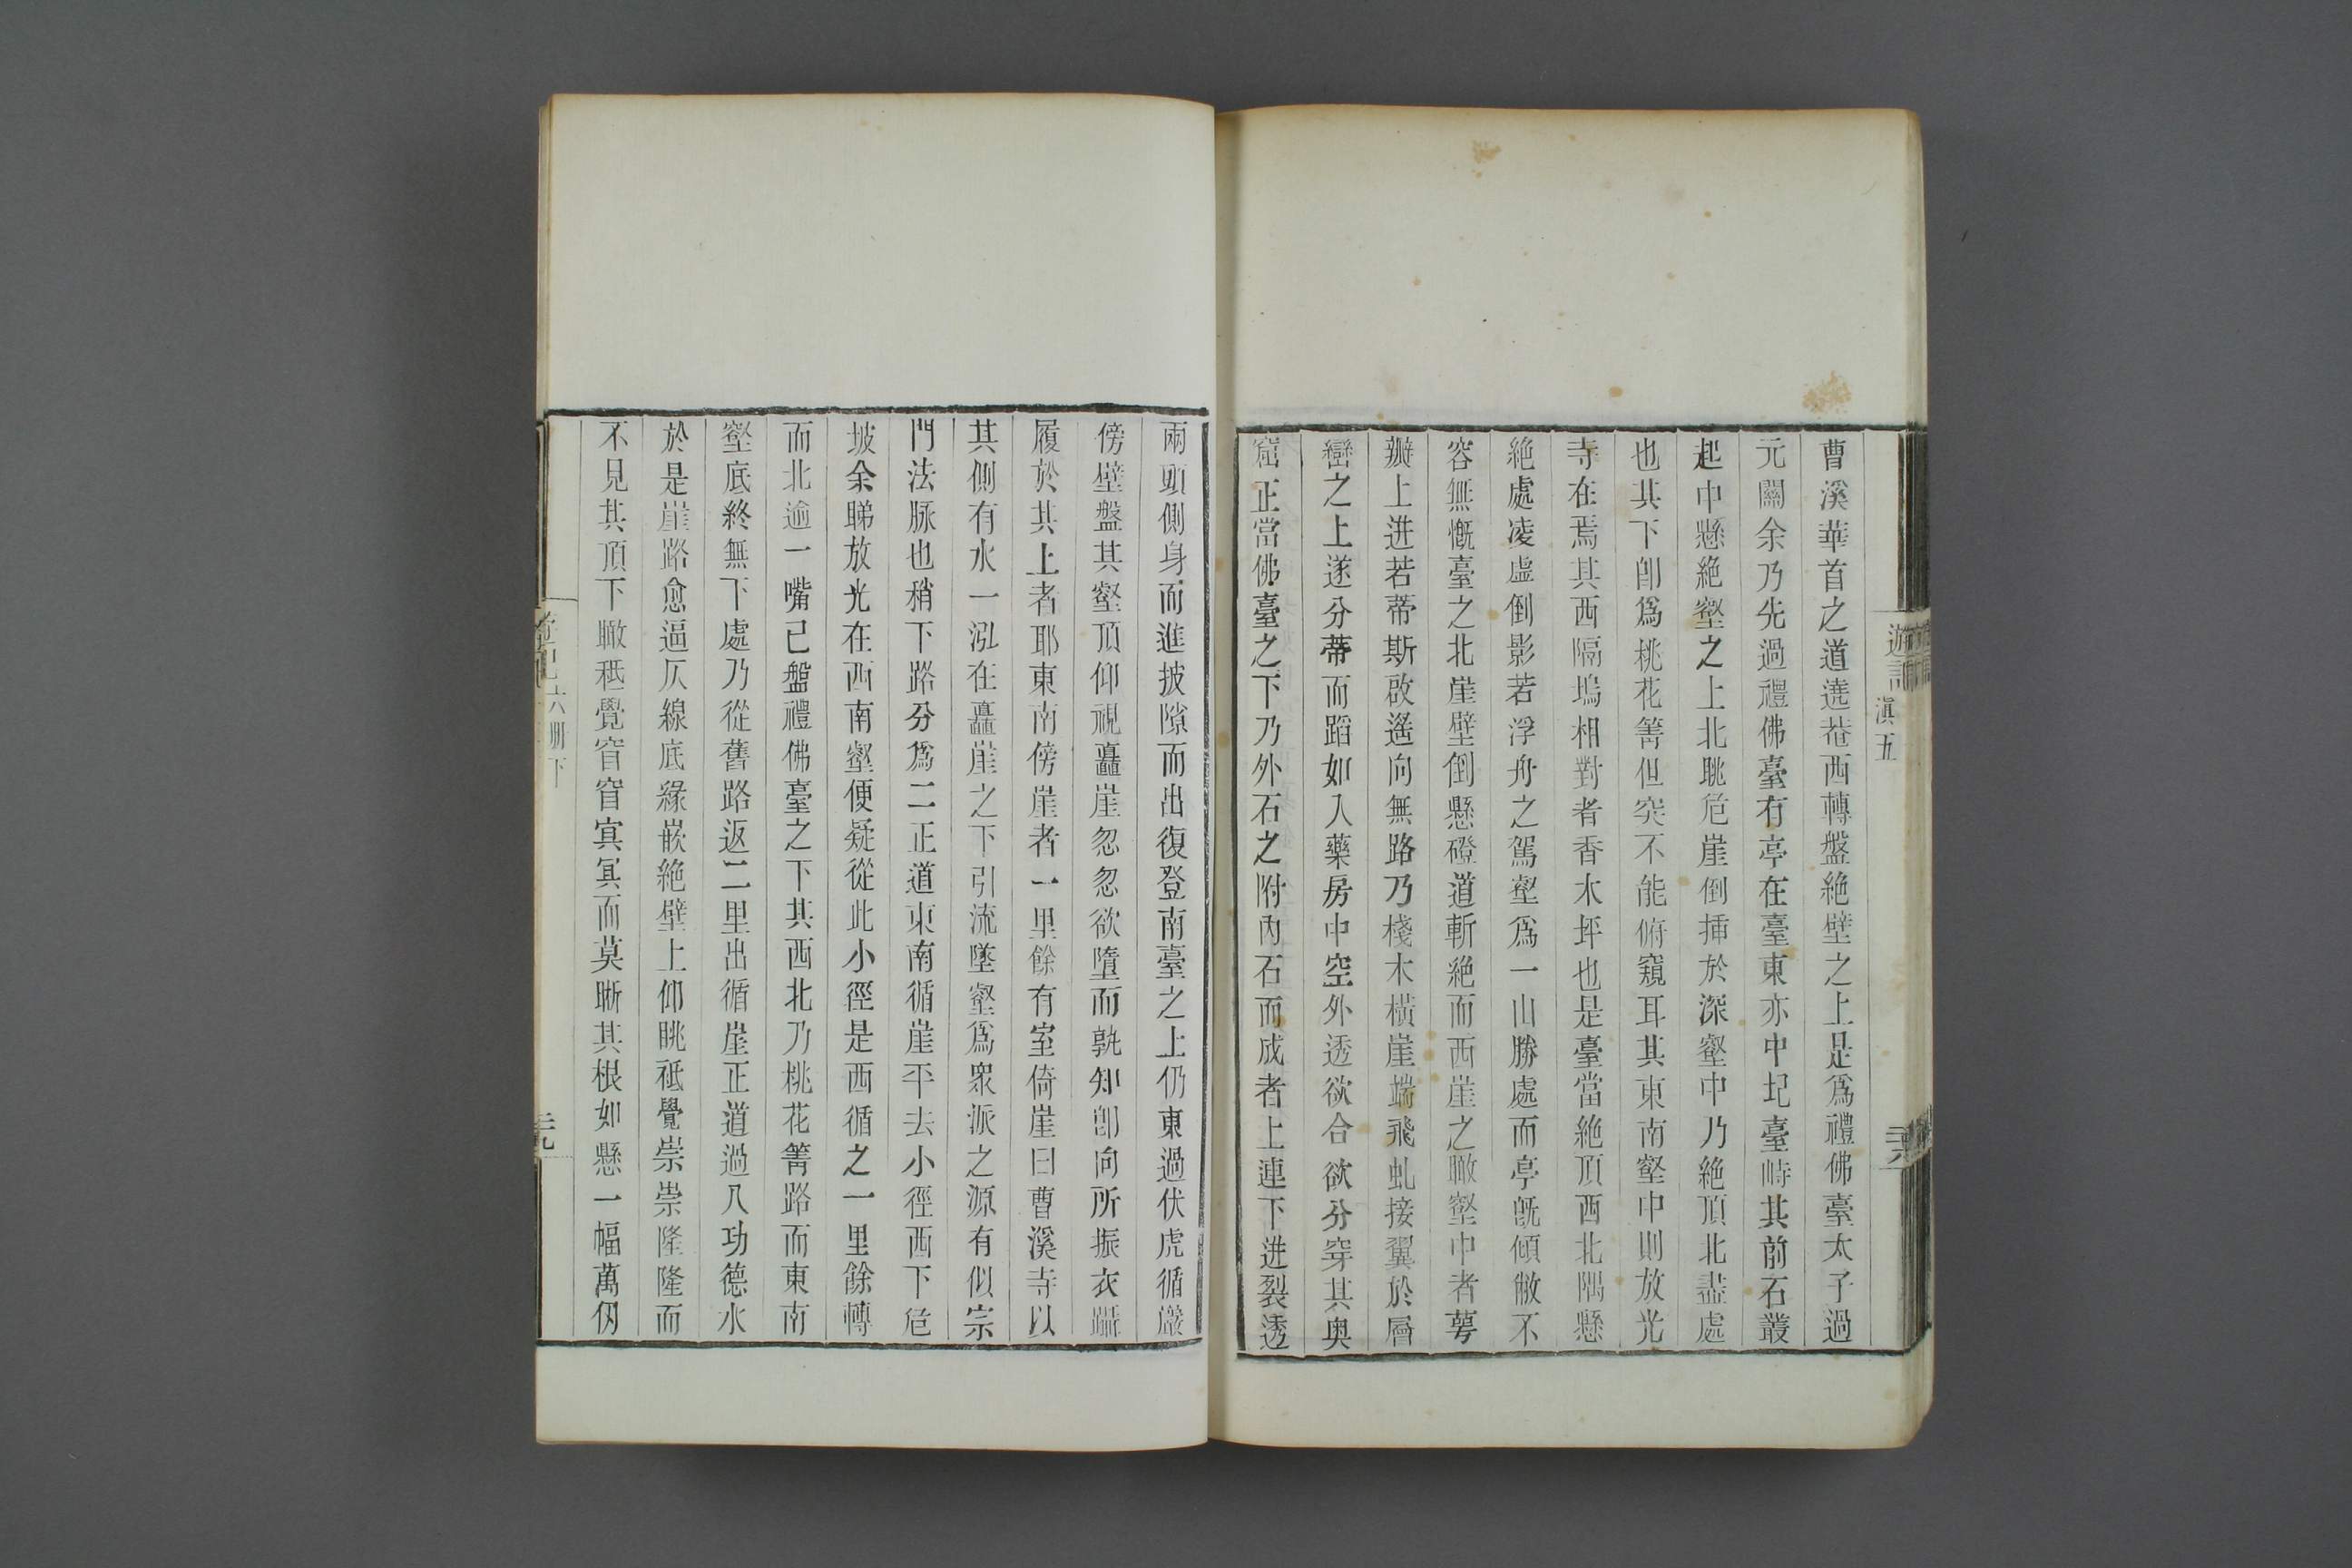 遊記
滇五
曹溪華首之道遶菴西轉盤絶壁之上是爲禮佛臺太子過
元關余乃先過禮佛臺有亭在臺東亦中圮臺峙其前石叢
起中懸絶壑之上北眺危崖倒揷於深壑中乃絶頂北盡處
也其下卽爲桃花箐但突不能俯窺耳其東南壑中則放光
寺在焉其西隔塢相對者香木坪也是臺當絶頂西北隅懸
絶處凌虛倒影若浮舟之駕壑爲一山勝處而亭旣傾敝不
容無慨臺之北崖壁倒懸磴道斬絶而西崖之瞰壑中者萼
瓣上迸若蒂斯啟遙向無路乃棧木橫崖端飛虬接翼於層
巒之上遂分蒂而蹈如入藥房中空外透欲合欲分穿其奥
窟正當佛臺之下乃外石之附內石而成者上連下迸裂透
兩頭側身而進披隙而出復登南臺之上仍東過伏虎循巖
傍壁盤其壑頂仰視矗崖忽忽欲墮而孰知卽向所振衣躡
履於其上者耶東南傍崖者一里餘有室倚崖曰曹溪寺以
其側有水一泓在矗崖之下引流墜壑爲衆派之源有似宗
門法脉也稍下路分爲二正道東南循崖平去小徑西下危
坡余睇放光在西南壑便疑從此小徑是西循之一里餘轉
而北逾一嘴已盤禮佛臺之下其西北乃桃花箐路而東南
壑底終無下處乃從舊路返二里出循崖正道過八功德水
於是崖路愈逼仄線底緣嵌絶壁上仰眺祗覺崇崇隆隆而
不見其頂下瞰秪覺窅窅㝠㝠而莫晣其根如懸一幅萬仞
六册下